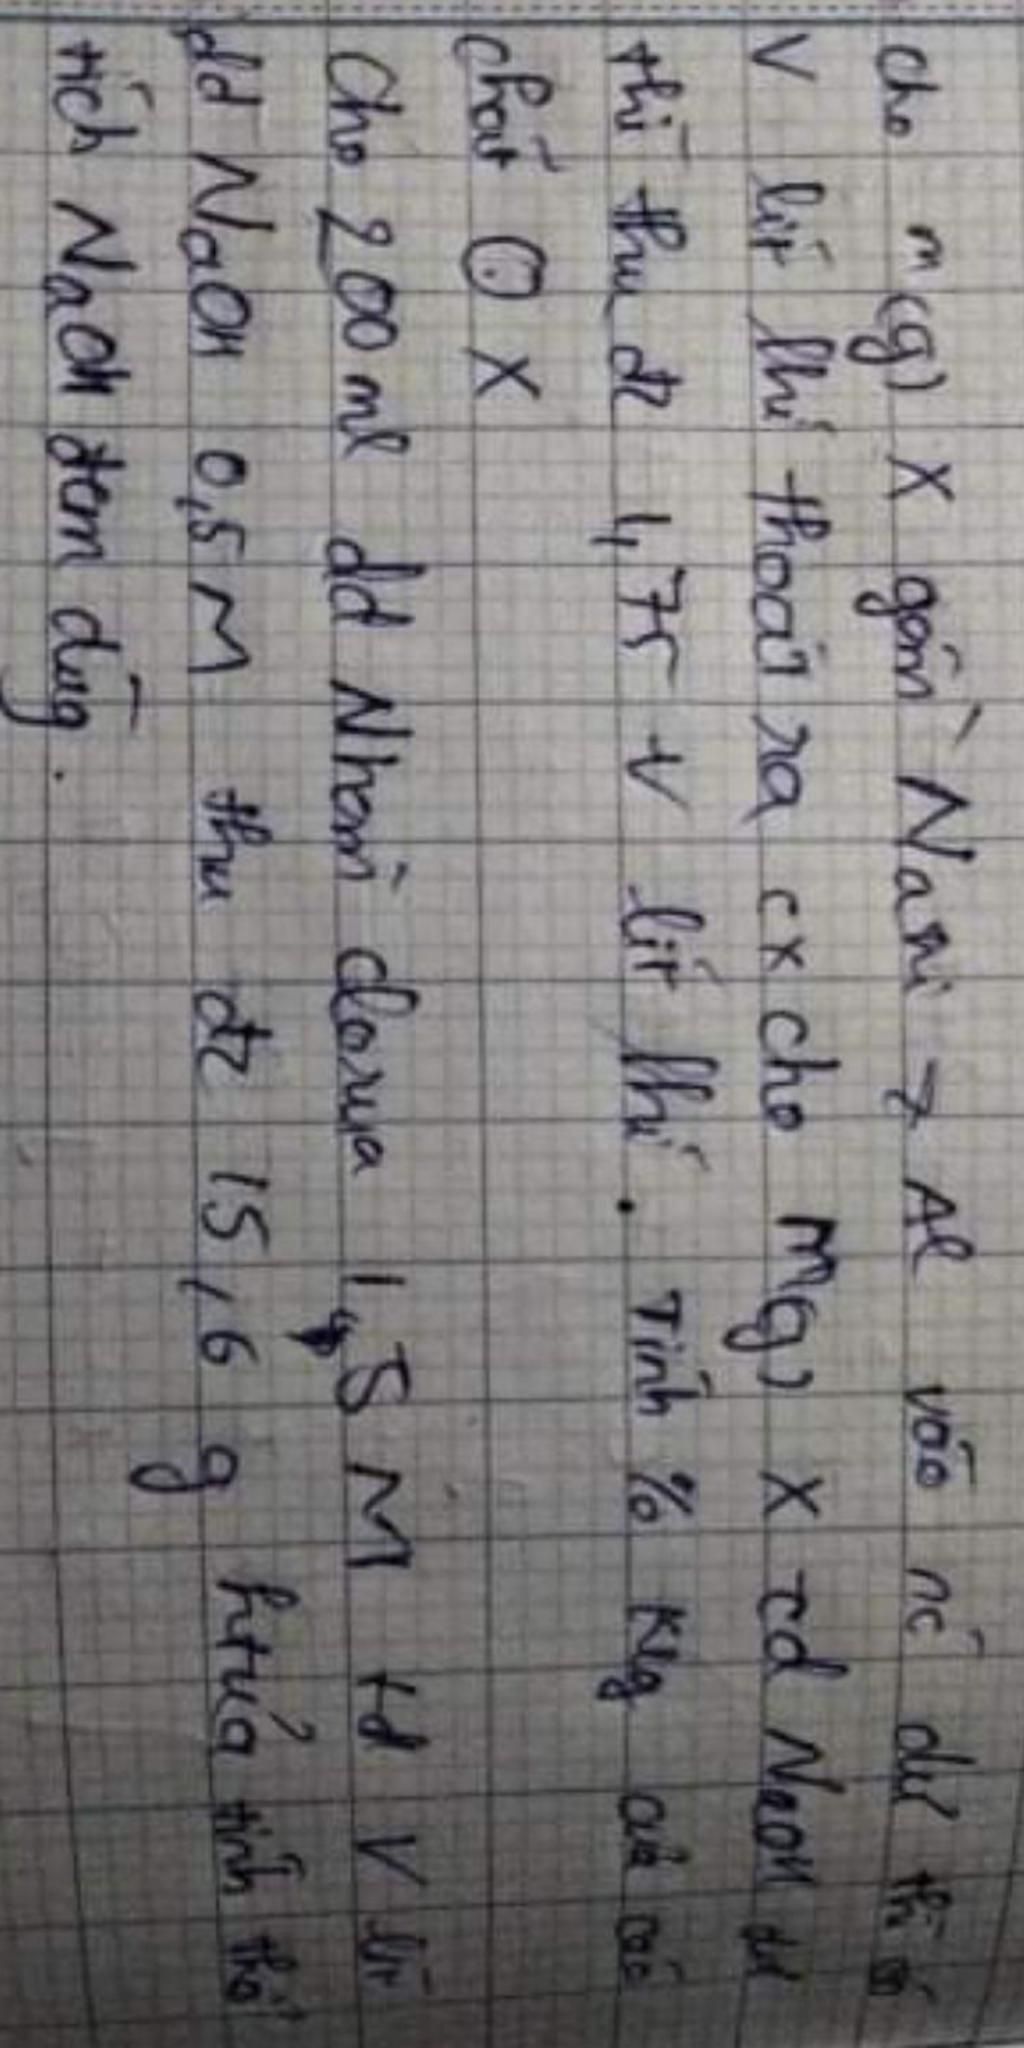 cho m(g) X gồm Natri và Al vào nc dư thì có
V lít khí thoát ra cx cho m(g) X td NaOH dư
thì thu đc 1,75 V lít khí. Tính % klg của các
chất ⊙ X
Cho 200 ml dd Nhôm clorua 1,5 M td V lít
dd NaOH 0,5M thu đc 15,6 g ktủa tính thể
tích NaOH đem dùng.